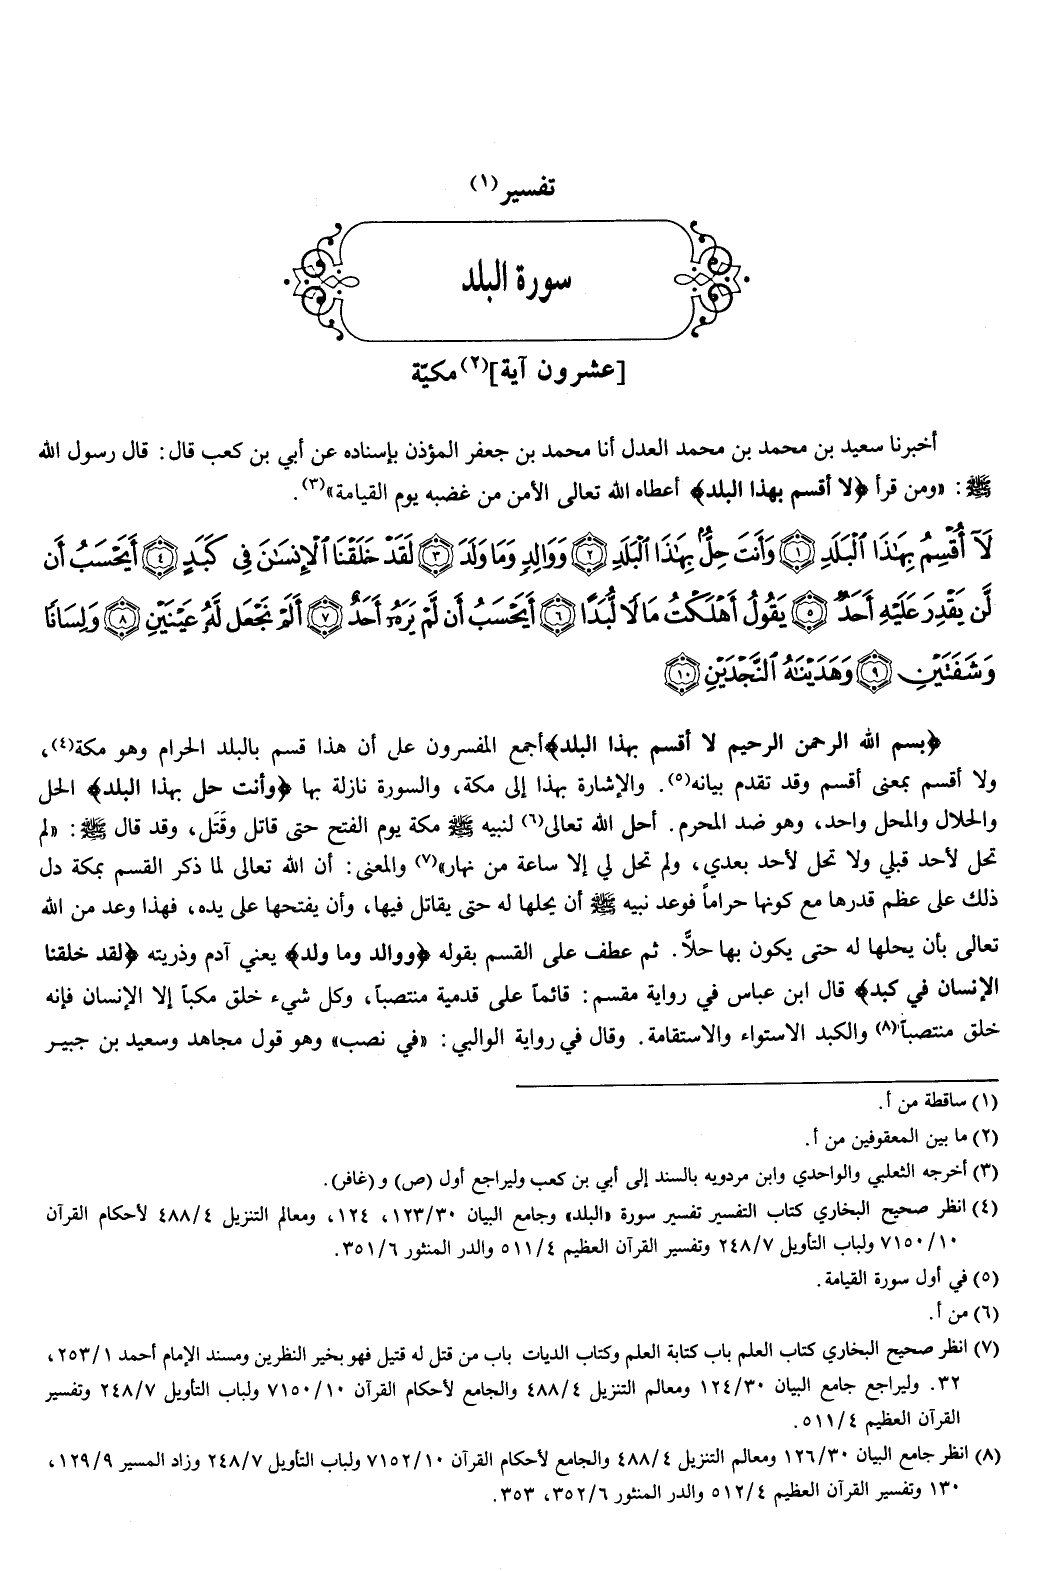 تفسير(١)
سورة البلد
[عشرون آية](٢) مكيّة
أخبرنا سعيد بن محمد بن محمد العدل أنا محمد بن جعفر المؤذن بإسناده عن أبي بن كعب قال: قال رسول الله
ﷺ: «ومن قرأ ﴿لا أقسم بهذا البلد﴾ أعطاه الله تعالى الأمن من غضبه يوم القيامة»(٣).
لَآ أُقْسِمُ بِهَٰذَا ٱلْبَلَدِ ﴿١﴾ وَأَنتَ حِلٌّۢ بِهَٰذَا ٱلْبَلَدِ ﴿٢﴾ وَوَالِدٍ وَمَا وَلَدَ ﴿٣﴾ لَقَدْ خَلَقْنَا ٱلْإِنسَٰنَ فِى كَبَدٍ ﴿٤﴾ أَيَحْسَبُ أَن
لَّن يَقْدِرَ عَلَيْهِ أَحَدٌ ﴿٥﴾ يَقُولُ أَهْلَكْتُ مَالًا لُّبَدًا ﴿٦﴾ أَيَحْسَبُ أَن لَّمْ يَرَهُۥٓ أَحَدٌ ﴿٧﴾ أَلَمْ نَجْعَل لَّهُۥ عَيْنَيْنِ ﴿٨﴾ وَلِسَانًا
وَشَفَتَيْنِ ﴿٩﴾ وَهَدَيْنَٰهُ ٱلنَّجْدَيْنِ ﴿١٠﴾
﴿بسم الله الرحمن الرحيم لا أقسم بهذا البلد﴾أجمع المفسرون على أن هذا قسم بالبلد الحرام وهو مكة(٤)،
ولا أقسم بمعنى أقسم وقد تقدم بيانه(٥). والإشارة بهذا إلى مكة، والسورة نازلة بها ﴿وأنت حل بهذا البلد﴾ الحل
والحلال والمحل واحد، وهو ضد المحرم. أحل الله تعالى(٦) لنبيه ﷺ مكة يوم الفتح حتى قاتل وقَتَل، وقد قال ﷺ: «لم
تحل لأحد قبلي ولا تحل لأحد بعدي، ولم تحل لي إلا ساعة من نهار»(٧) والمعنى: أن الله تعالى لما ذكر القسم بمكة دل
ذلك على عظم قدرها مع كونها حراماً فوعد نبيه ﷺ أن يحلها له حتى يقاتل فيها، وأن يفتحها على يده، فهذا وعد من الله
تعالى بأن يحلها له حتى يكون بها حلاًّ. ثم عطف على القسم بقوله ﴿ووالد وما ولد﴾ يعني آدم وذريته ﴿لقد خلقنا
الإنسان في كبد﴾ قال ابن عباس في رواية مقسم: قائماً على قدمية منتصباً، وكل شيء خلق مكباً إلا الإنسان فإنه
خلق منتصباً(٨) والكبد الاستواء والاستقامة. وقال في رواية الوالبي: «في نصب» وهو قول مجاهد وسعيد بن جبير
(١) ساقطة من أ.
(٢) ما بين المعقوفين من أ.
(٣) أخرجه الثعلبي والواحدي وابن مردويه بالسند إلى أبي بن كعب وليراجع أول (ص) و (غافر).
(٤) انظر صحيح البخاري كتاب التفسير تفسير سورة «البلد» وجامع البيان ١٢٣/٣٠، ١٢٤، ومعالم التنزيل ٤٨٨/٤ لأحكام القرآن
٧١٥٠/١٠ ولباب التأويل ٢٤٨/٧ وتفسير القرآن العظيم ٥١١/٤ والدر المنثور ٣٥١/٦.
(٥) في أول سورة القيامة.
(٦) من أ.
(٧) انظر صحيح البخاري كتاب العلم باب كتابة العلم وكتاب الديات باب من قتل له قتيل فهو بخير النظرين ومسند الإمام أحمد ٢٥٣/١،
٣٢. وليراجع جامع البيان ١٢٤/٣٠ ومعالم التنزيل ٤٨٨/٤ والجامع لأحكام القرآن ٧١٥٠/١٠ ولباب التأويل ٢٤٨/٧ وتفسير
القرآن العظيم ٥١١/٤.
(٨) انظر جامع البيان ١٢٦/٣٠ ومعالم التنزيل ٤٨٨/٤ والجامع لأحكام القرآن ٧١٥٢/١٠ ولباب التأويل ٢٤٨/٧ وزاد المسير ١٢٩/٩،
١٣٠ وتفسير القرآن العظيم ٥١٢/٤ والدر المنثور ٣٥٢/٦، ٣٥٣.